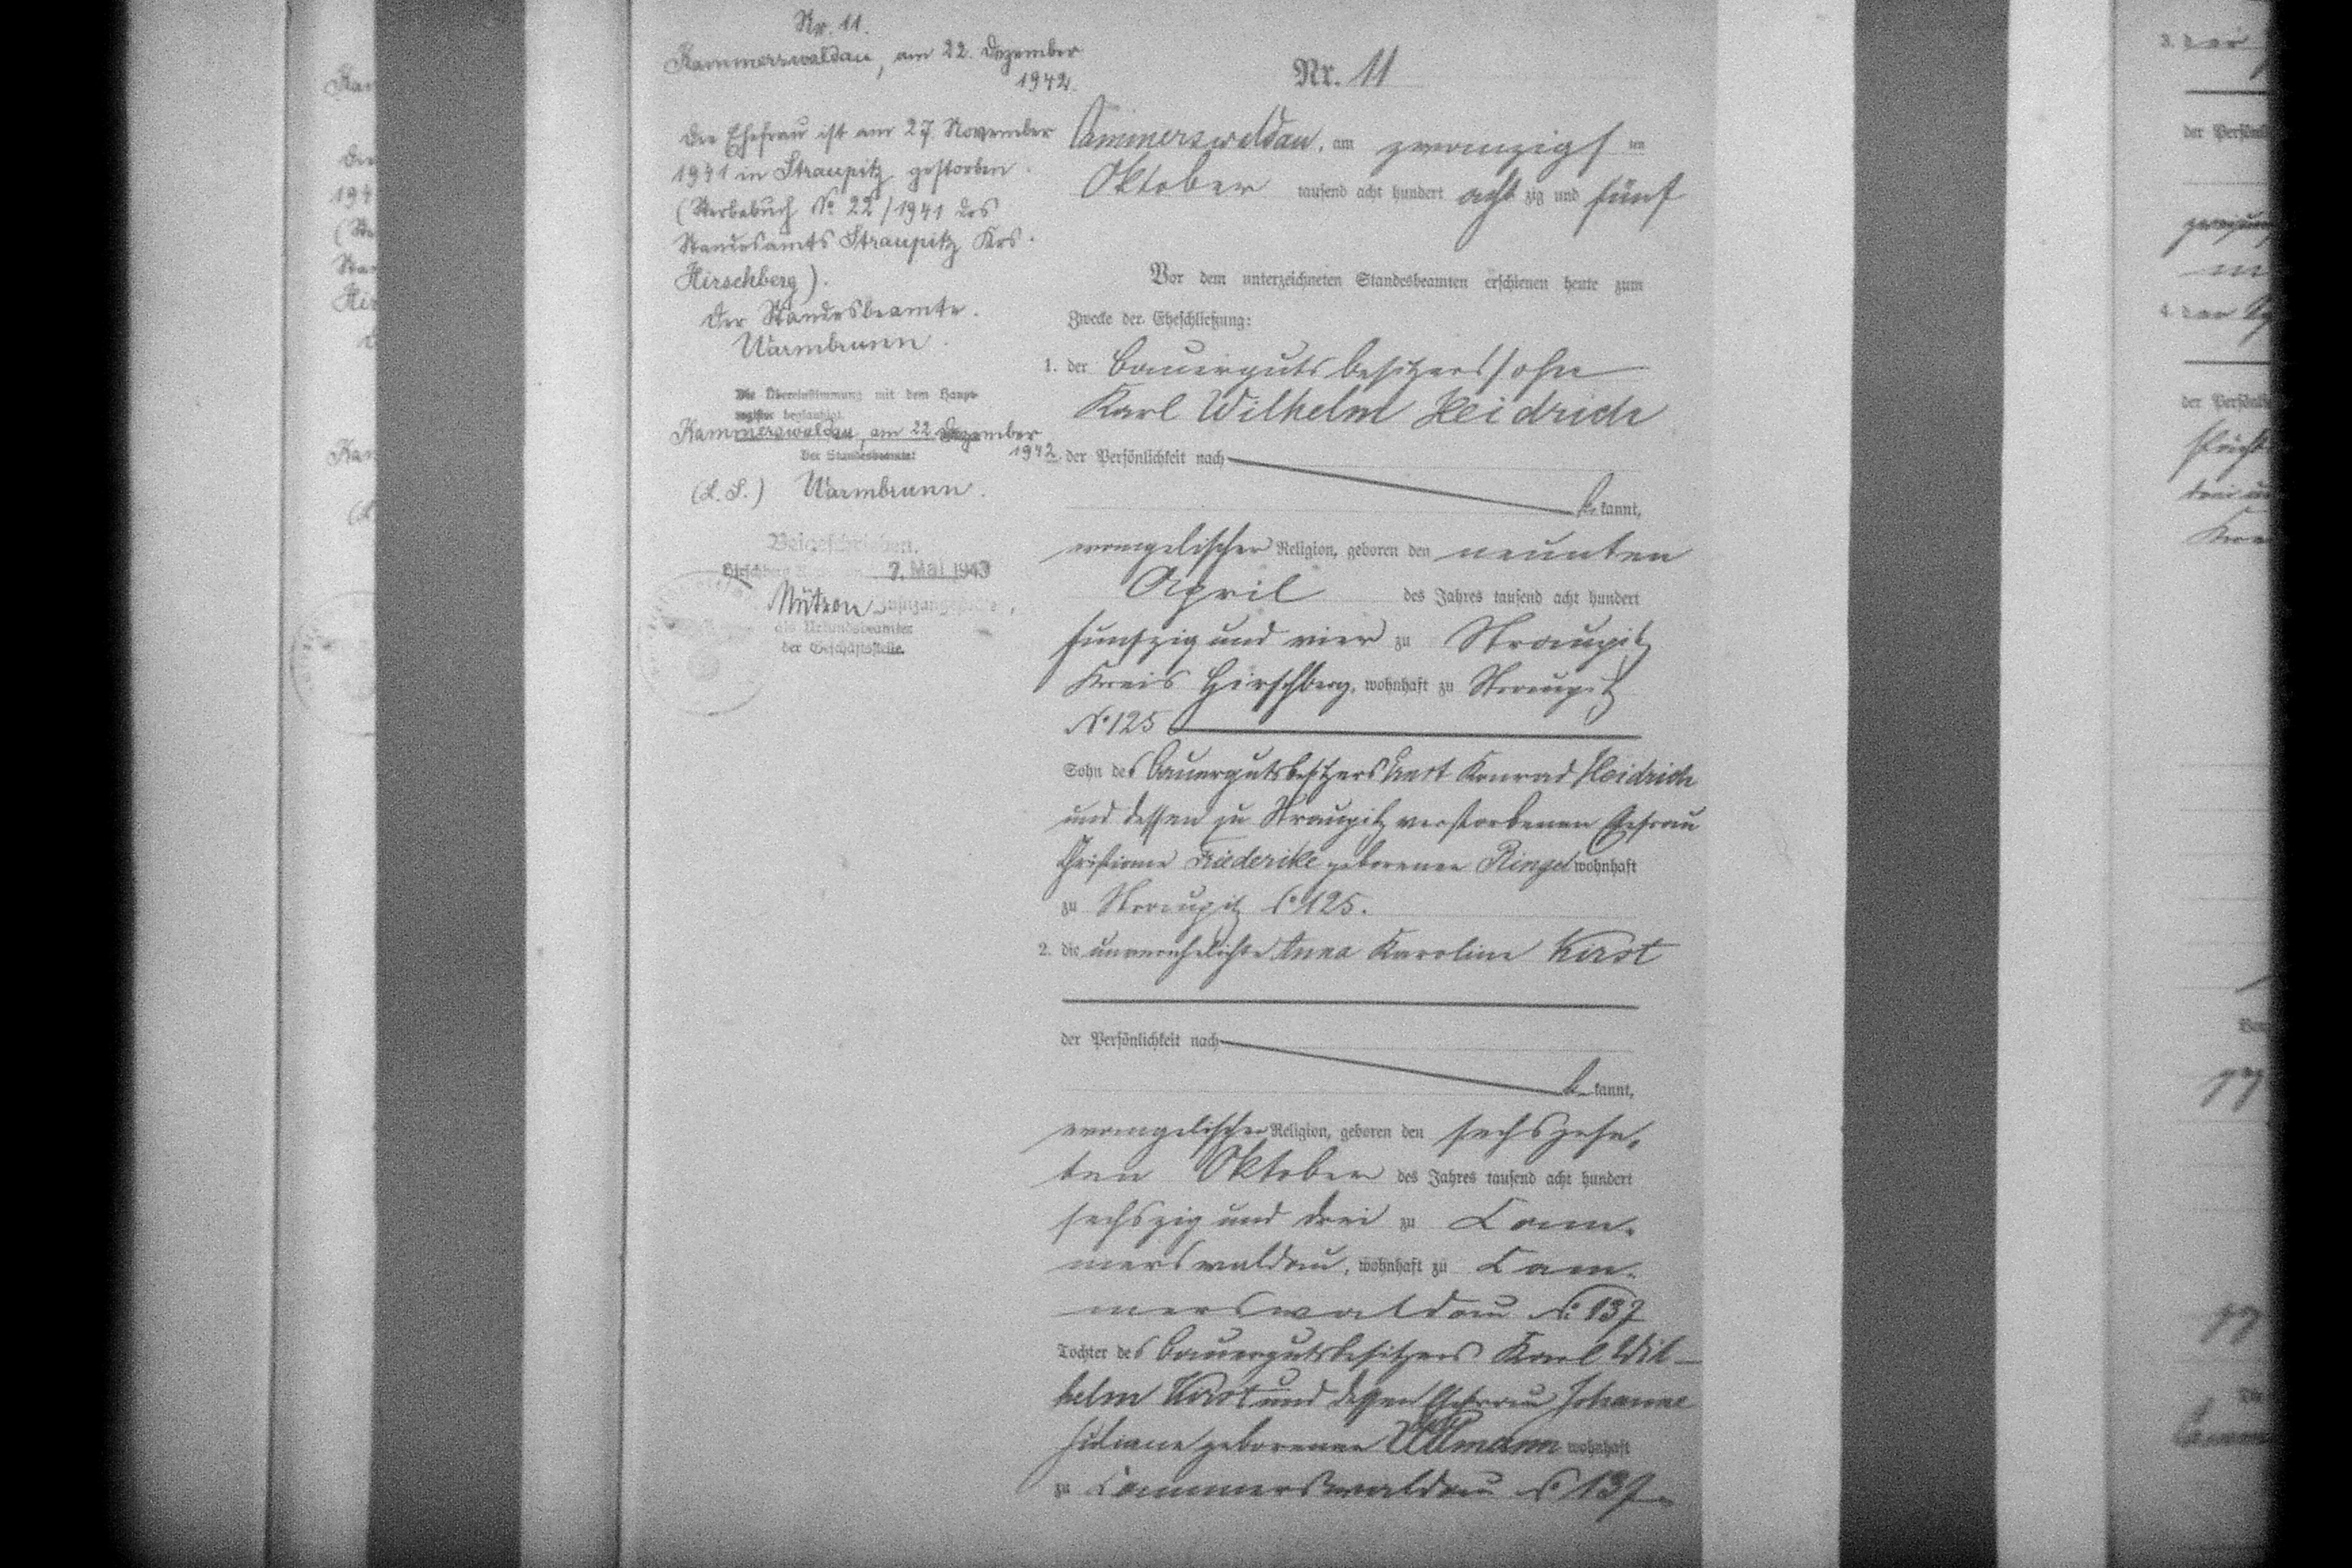 Nr. 11.
Kammerswaldau, am 22. Dezember
1942.
Die Ehefrau ist am 27. November
1941 in Straupitz gestorben.
(Sterbebuch No 22/1941 des
Standesamts Straupitz Krs.
Hirschberg).
Der Standesbeamte.
Warmbrunn.
Die Übereinstimmung mit dem Haupt-
register beglaubigt.
Kammerswaldau, am 22. Dezember
1942.
Der Standesbeamte
(L. S.) Warmbrunn.
Beigeschrieben.
7. Mai 1943
als Urkundsbeamter
der Geschäftsstelle.
Nr. 11
Cammerswaldau, am zwanzigsten
Oktober tausend acht hundert achtzig und fünf
Vor dem unterzeichneten Standesbeamten erschienen heute zum
Zwecke der Eheschließung:
1. der Bauergutsbesitzerssohn
Karl Wilhelm Heidrich
der Persönlichkeit nach
bekannt,
evangelischer Religion, geboren den neunten
April des Jahres tausend acht hundert
funfzig und vier zu Straupitz
Kreis Hirschberg, wohnhaft zu Straupitz
No 125
Sohn des Bauergutsbesitzers Konrad Heidrich
und dessen zu Straupitz verstorbenen Ehefrau
Christiane Friederike geborenen Ringel wohnhaft
zu Straupitz No 125.
2. die unverehelichte Anna Karoline Kirst
der Persönlichkeit nach
bekannt,
evangelischer Religion, geboren den sechszehn-
ten Oktober des Jahres tausend acht hundert
sechszig und drei zu Cam-
merswaldau, wohnhaft zu Cam-
merswaldau No 137
Tochter des Bauergutsbesitzers Karl Wil-
helm Kirst und dessen Ehefrau Johanne
Juliane geborenen Ullmann wohnhaft
zu Cammerswaldau No 137.